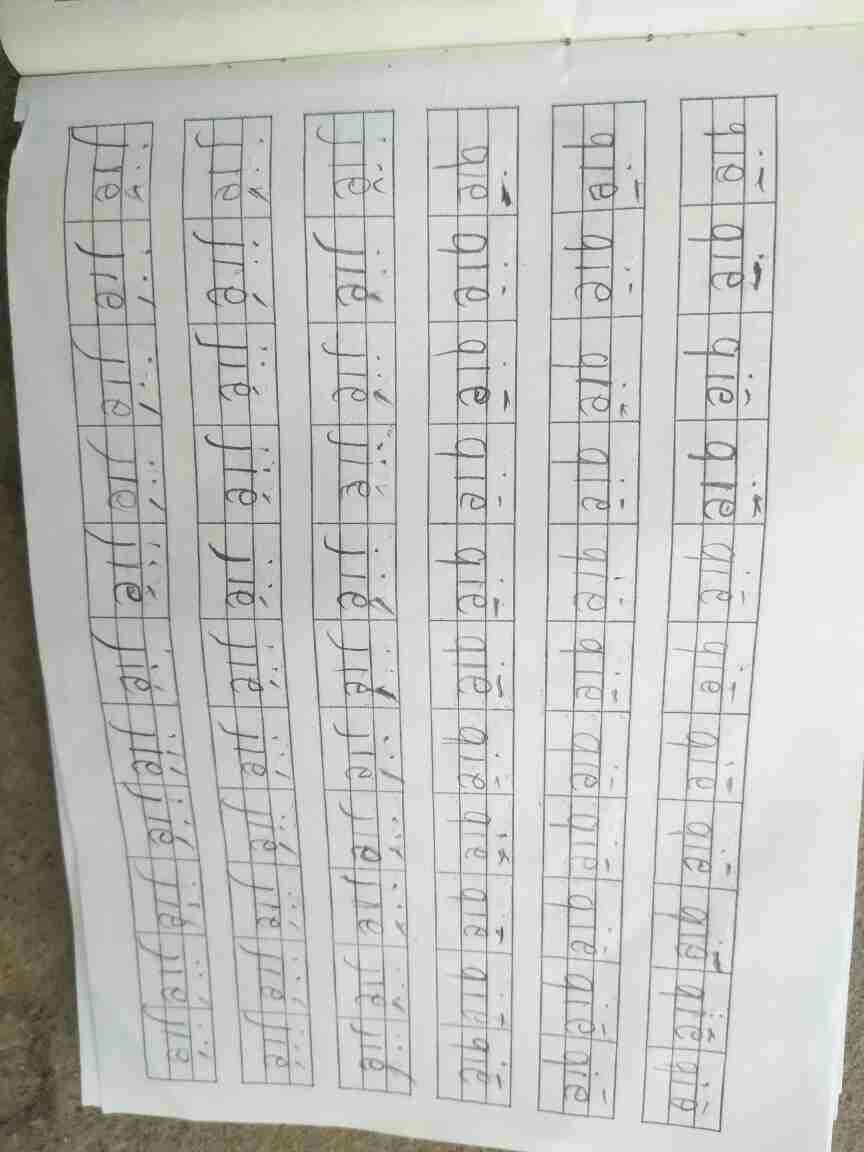 qiē qiē qiē qiē qiē qiē qiē qiē qiē qiē qiē
qiē qiē qiē qiē qiē qiē qiē qiē qiē qiē qiē
qiē qiē qiē qiē qiē qiē qiē qiē qiē qiē qiē
jié jié jié jié jié jié jié jié jié jié jié
jié jié jié jié jié jié jié jié jié jié jié
jié jié jié jié jié jié jié jié jié jié jié